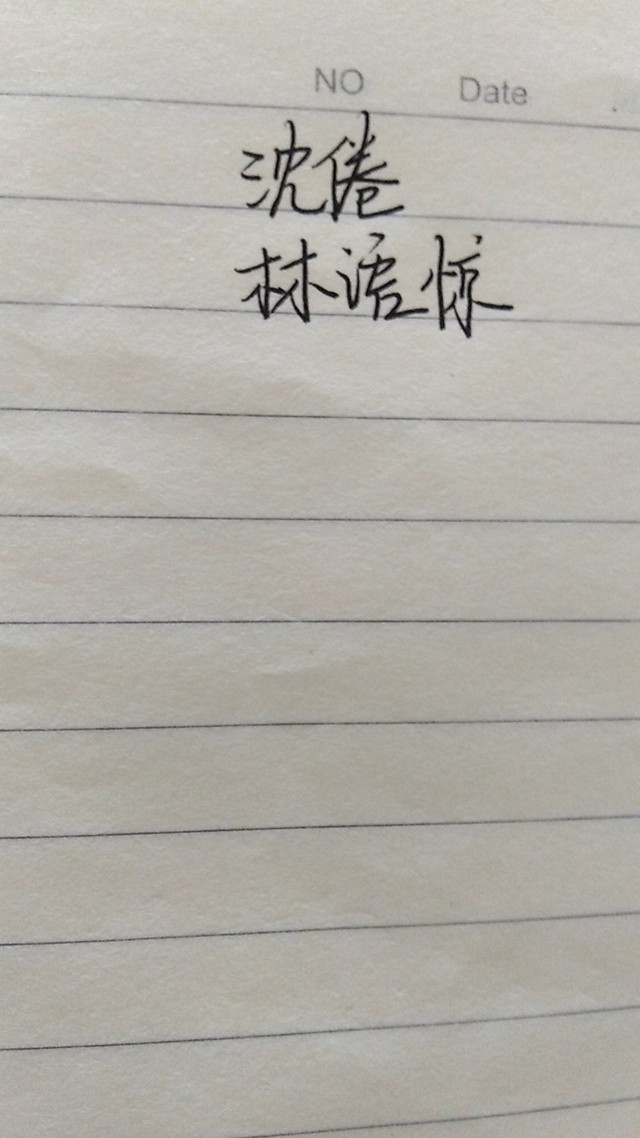 NO Date
沈倦
林语惊